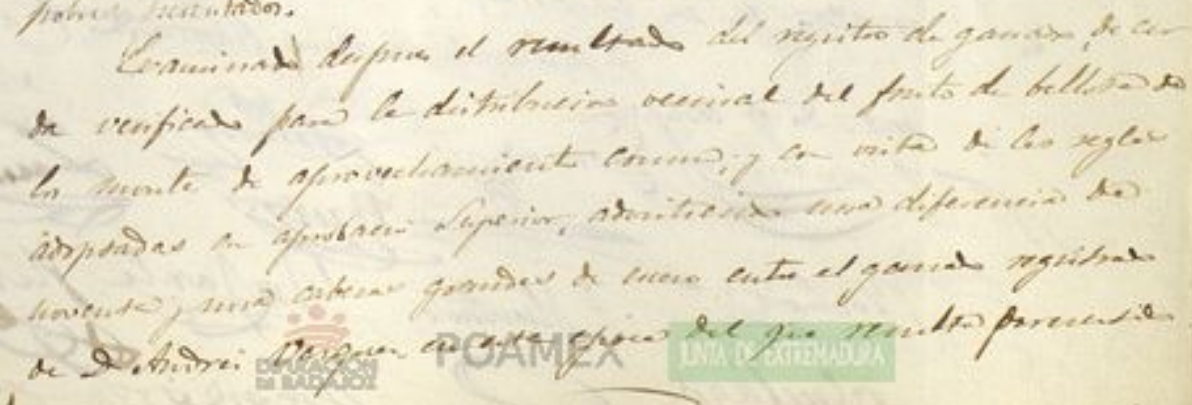 pobres
Examinado despues el resultado del registro de ganado de cer
da verificado para la distribucion vecinal del fruto de bellota de
los monte de aprovechamiento comun, y con vista de las reglas
adoptadas con aprobacion Superior, una diferencia de
noventa y una cabezas grandes de entre el ganado registrado
de D. Andres Vazquez en esta epoca del que resulta
DIPUTACIÓN
DE BADAJOZ
POAMEX
JUNTA DE EXTREMADURA